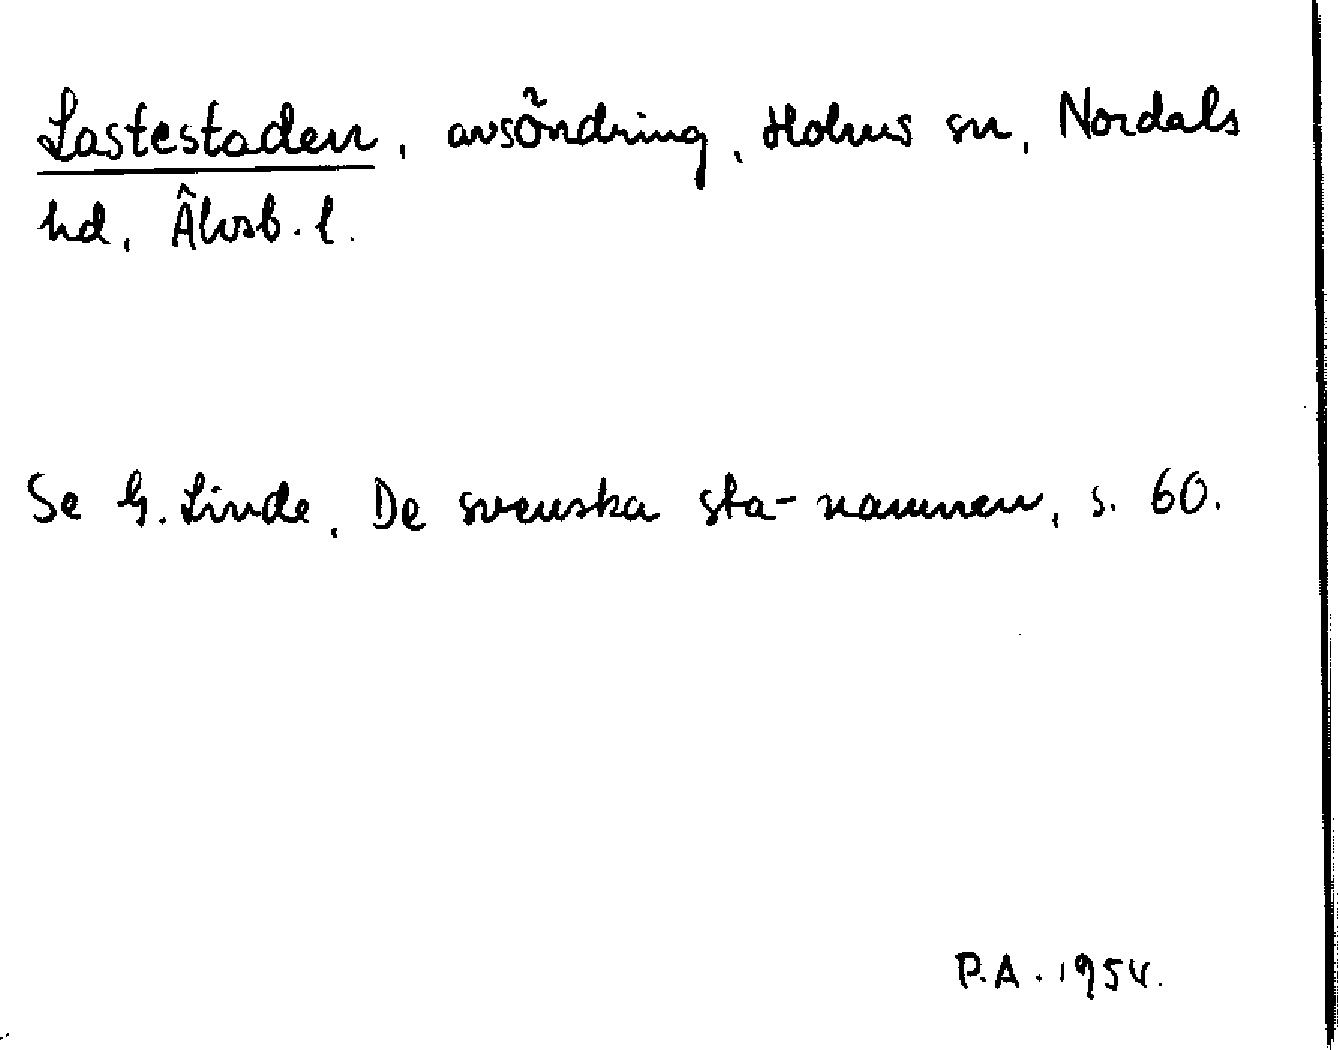 Lastestaden, avsöndring, Holms sn, Nordals
hd, Älvsb. l.
Se G. Linde, De svenska sta-namnen, s. 60.
P.A. 1954.